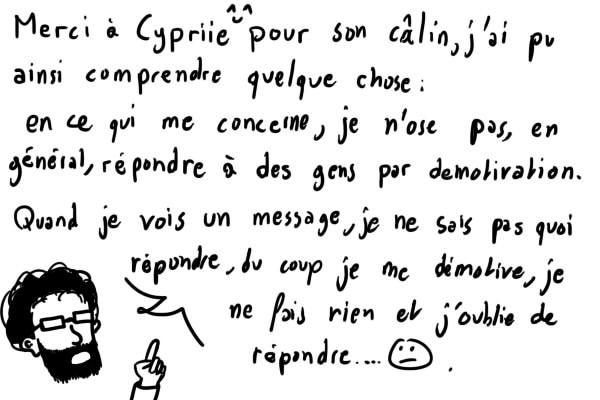 Merci à Cypriie ^^ pour son câlin, j'ai pu
ainsi comprendre quelque chose :
en ce qui me concerne, je n'ose pas, en
général, répondre à des gens par demotivation.
Quand je vois un message, je ne sais pas quoi
répondre, du coup je me démotive, je
ne fais rien et j'oublie de
répondre.... ☹ .